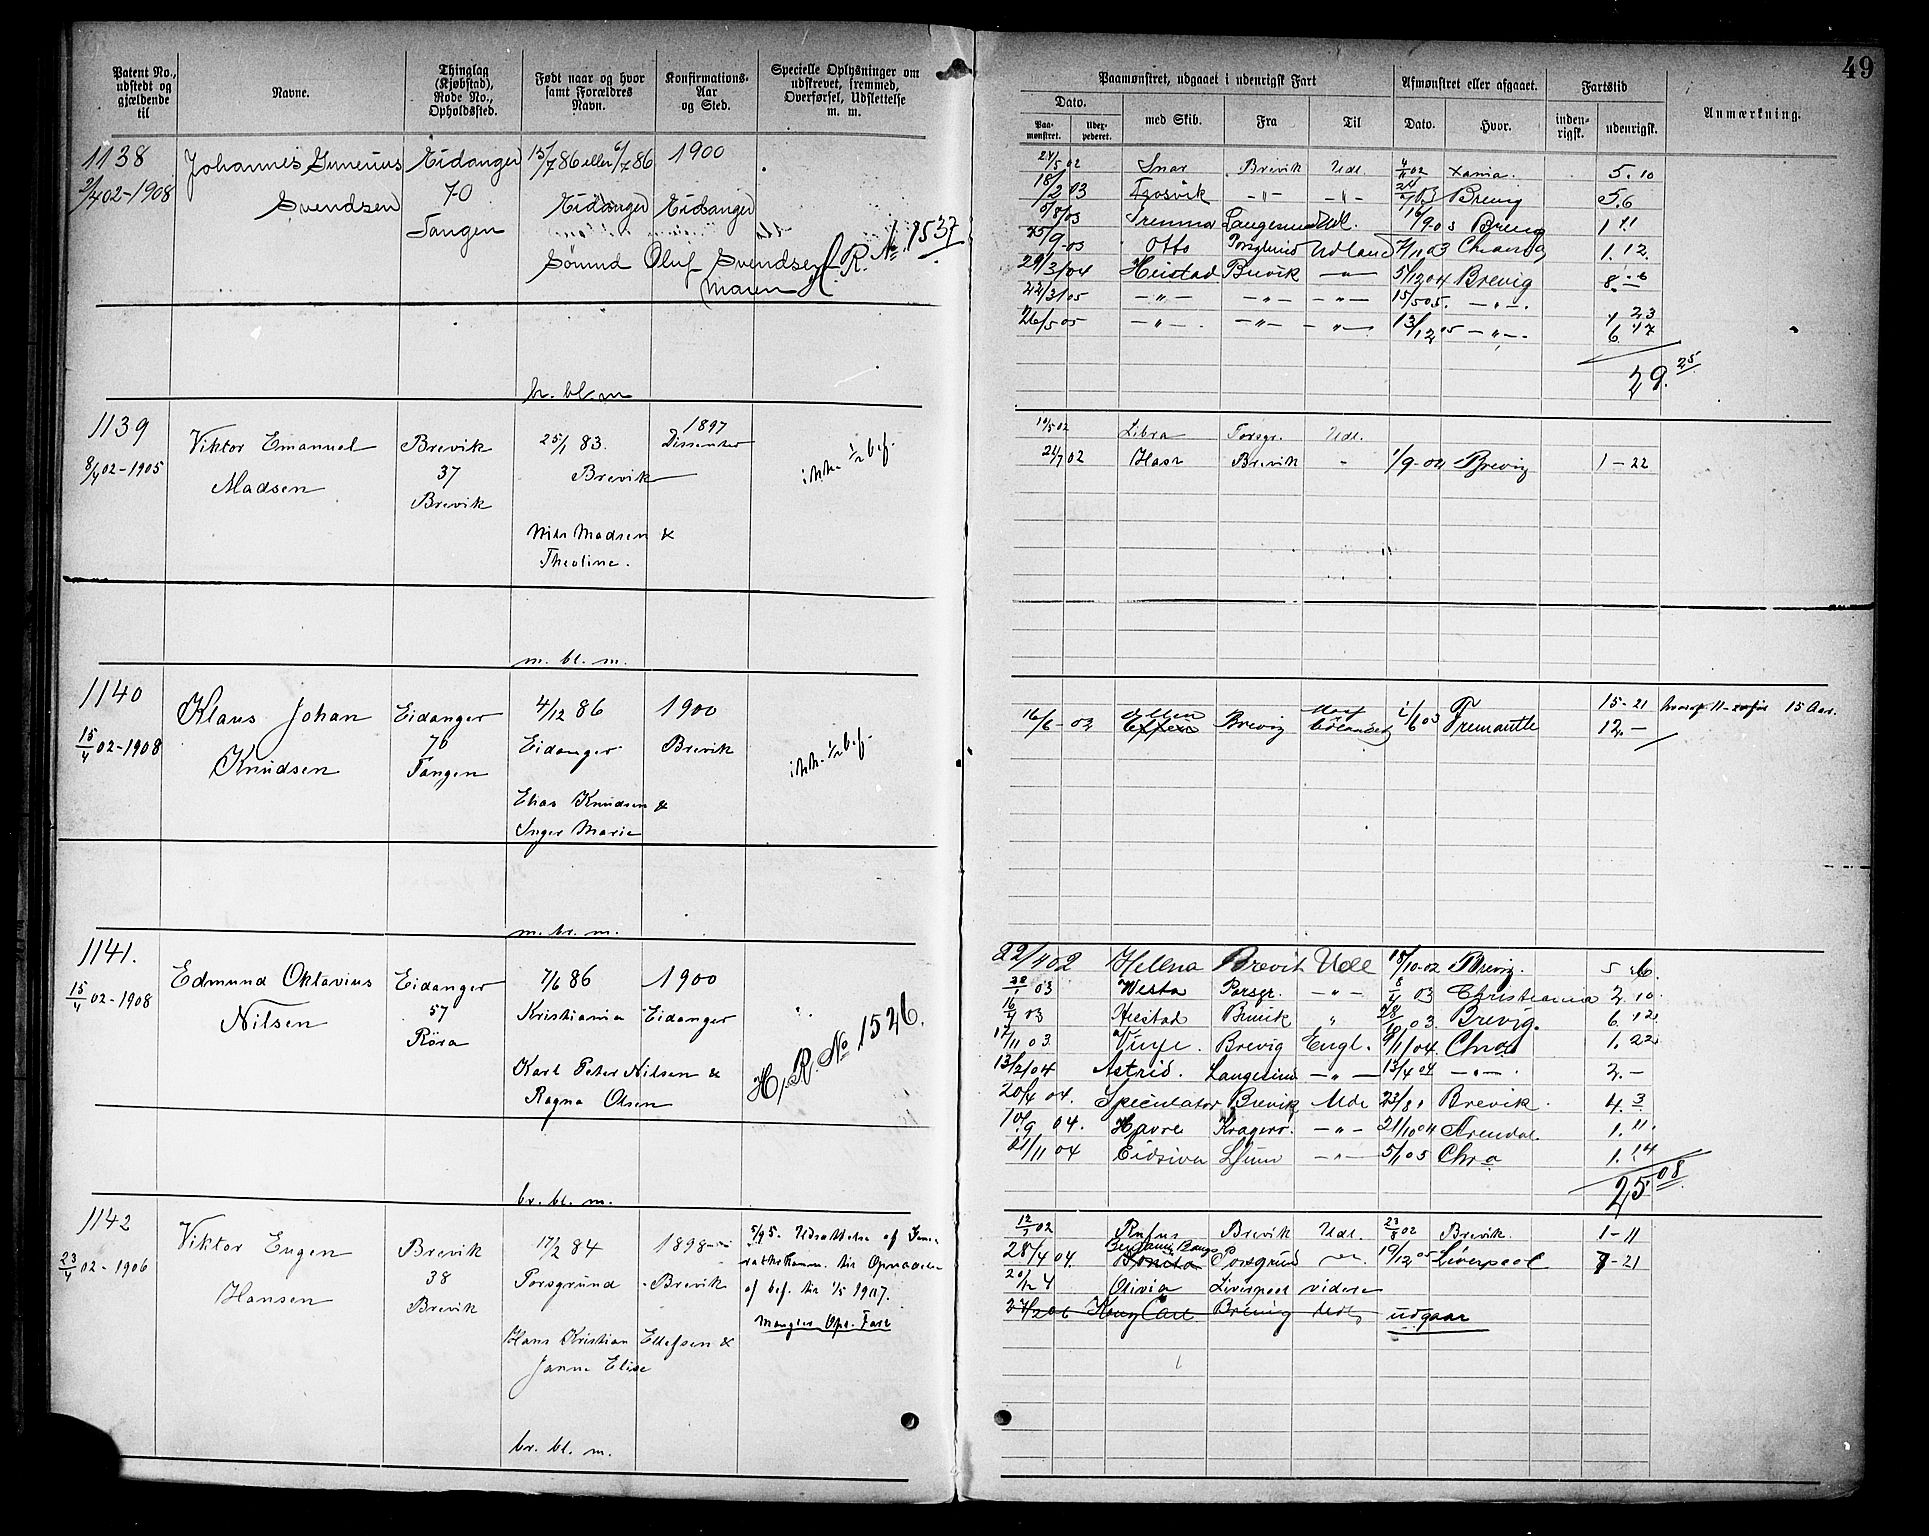 49
Patent No., udstedt og gjældende til
Navne.
Thinglag (Kjøbstad), Rode No., Opholdssted.
Født naar og hvor samt Forældres Navn.
Konfirmations-Aar og Sted.
Specielle Oplysninger om udskrevet, fremmed, Overførsel, Udslettelse m. m.
Paamønstret, udgaaet i udenrigsk Fart
Afmønstret eller afgaaet.
Fartstid
Anmærkning.
Dato.
Paa-mønstret.
Udex-pederet.
med Skib.
Fra
Til
Dato.
Hvor.
inden-rigsk.
udenrigsk.
1138
2/4 02-1908
Johannes Gunerius
Svendsen
Eidanger
70
Tangen
15/7 86 eller 6/7 86
Eidanger
1900
Eidanger
Oluf Svendsen
Maren
H. R. No 1537
br. bl. m
24/5 02 Snar Brevik Udl. 02 Xania. 5. 10
18/2 03 -"- -"- 03 Brevig 5. 6
5/8 03 Langesund Udl. 16/9 03 Brevig 1 11
25/9 03 Otto Porsgrund Udland 7/11 03 Chania 1. 12
29/3/04 Heistad Brevik -"- 5/12 04 Brevig 8.
22/3 05 -"- -"- -"- 15/5 05. -"- 1 23
26/5 05 -"- -"- -"- 13/12 05 -"- 6. 17
29. 25
1139
8/4 02-1905
Viktor Emanuel
Madsen
Brevik
37
Brevik
25/1 83.
Brevik
Nils Madsen &
Theoline.
1897
Dissenter
ikke 1/2 bef.
m. bl. m.
10/5 02 Libra Porsgr. Udl.
21/7 02 Brevik - 1/9-02 Brevig 1-22
1140
15/4 02-1908
Klaus Johan
Knudsen
Eidanger
76
Tangen
4/12 86
Eidanger
Elias Knudsen &
Inger Marie
1900
Brevik
ikke 1/2 bef.
m. br. m.
16/6-02 Ellen Brevig Fremantle 15-21 15 Aar.
12.-
1141.
15/4 02-1908
Edmund Oktavius
Nilsen
Eidanger
57
Røra
7/6 86
Kristiania
Karl Peter Nilsen &
Ragna Olsen
1900
Eidanger
H. R. No 1526.
br. bl. m.
22/4 02 Helena Brevik Udl 18/10-02 Brevig. 5 6.
03 Westa Porsgr. -"- 8/4 03 Christiania 2. 10.
16/4 03 Heistad Brevik " 28/10 03. Brevig. 6. 12.
17/11 03 Brevig Engl. 9/1/04. Chra 1. 22
13/2/04 Astrid. Langesund -"- 13/4 04 -"- 2.-
20/4 04. Speculator Brevik Udl 23/8 " Brevik. 4. 3
10/9 04. Havre Kragerø. -"- 21/10 04 Arendal. 1. 11.
21/11 04 Eidsiva Ljun -"- 5/1 05 Chra 1. 14
25 08
1142
23/4 02-1906
Viktor Eugen
Hansen
Brevik
38
Brevik
17/2 84
Porsgrund
Hans Kristian Ellefsen &
Janna Elise
1898
Brevik
5/9 5. Udsættelse af
til
af bef. til 1/5 1907.
Mangler Opl. Fart
br. bl. m.
02 Rufus Brevik Udl. 23/8 02 Brevik. 1-11
28/4 04. Benjamin Bangs Porsgrund 19/12 05 Liverpool 7-21
20/12 4 Olivia Liverpool videre
27/2 06 Kong Carl Brevig Udl, udgaar